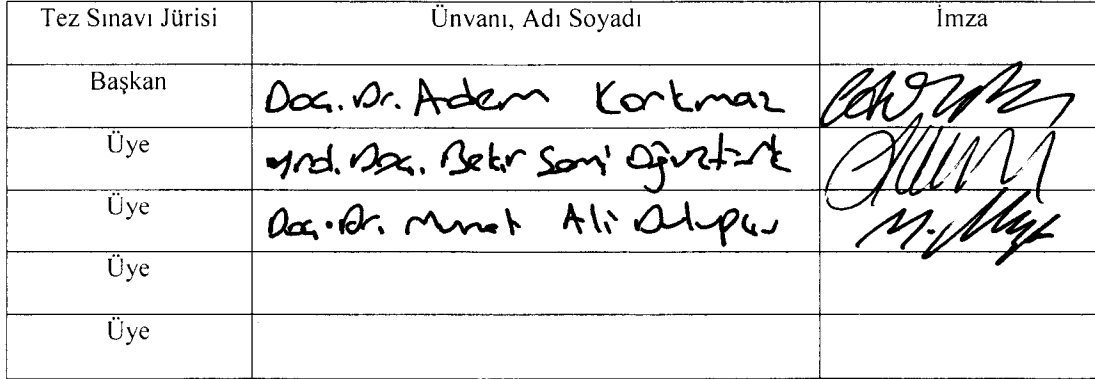 Tez Sınavı Jürisi Ünvanı, Adı Soyadı İmza
Başkan Doç. Dr. Adem Korkmaz
Üye Yrd. Doç. Bekir Sami Oğuztürk
Üye Doç. Dr. Murat Ali Dulupçu
Üye
Üye